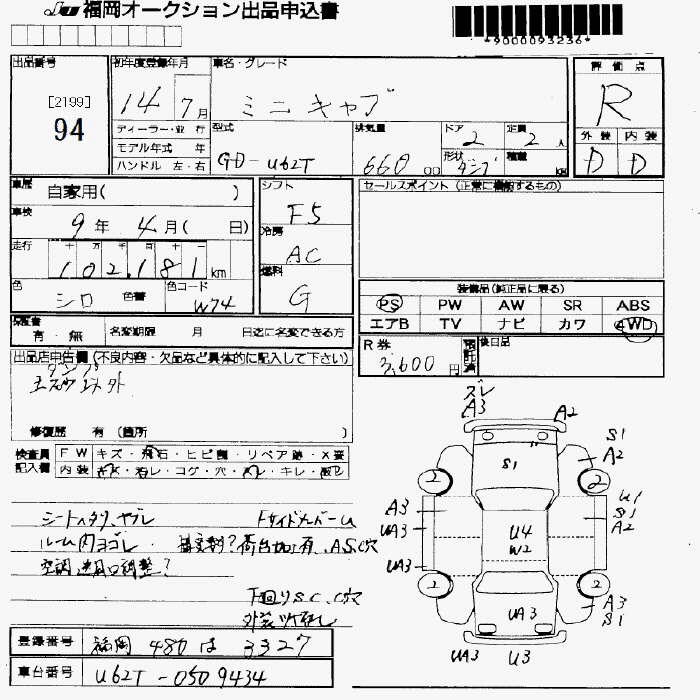 福岡オークション出品申込書
*9000093236*
出品番号
[2199]
94
初年度登録年月
14 7月
車名・グレード
ミニキャブ
評価点
R
外装 内装
D D
ディーラー・並行
モデル年式 年
ハンドル 左・右
型式
GD-U62T
排気量
660 cc
ドア
2
定員
2人
形状
ダンプ
積載
KG
車歴
自家用( )
車検
9年 4月( 日)
走行
十 万 千 百 十 一
102,181 km
色
シロ
色替
色コード
W74
シフト
F5
冷房
AC
燃料
G
セールスポイント (正常に機能するもの)
装備品(純正品に限る)
PS PW AW SR ABS
エアB TV ナビ カワ AWD
保証書
有・無
名変期限 月 日迄に名変できる方
R券
円
預託済
後日品
出品店申告欄(不良内容・欠品など具体的に記入して下さい)
ダンプ
修復歴 有 (箇所 )
検査員
記入欄
FW キズ・飛石・ヒビ割・リペア跡・X要
内装
シートヘタリ、ヤブレ
ルーム内ヨゴレ
下回りS.C.C穴
ズレ
A3 A2
S1
A2
S1
2 2
A3
UA3
UA3
U4
W2
S1
A2
2 2
UA3
A3
S1
UA3 U3
登録番号
福岡 480 は 3327
車台番号
U62T-0509434